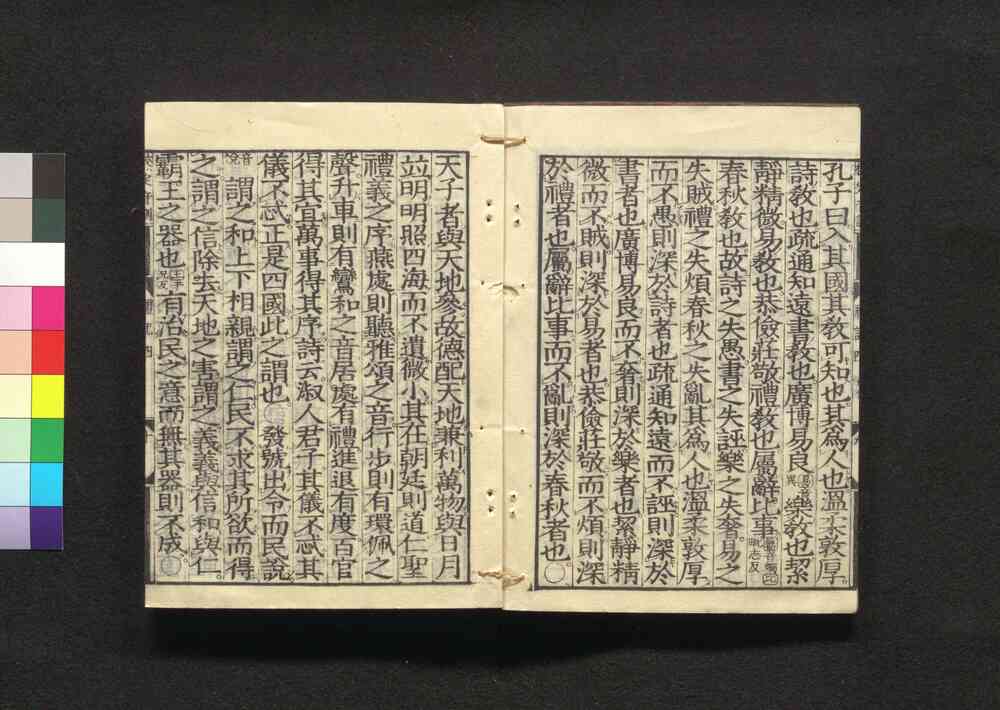 孔子曰入其國其敎可知也其爲人也溫柔敦厚
詩敎也疏通知遠書敎也廣博易良樂敎也絜
靜精微易敎也恭儉莊敬禮敎也屬辭比事
春秋敎也故詩之失愚書之失誣樂之失奢易之
失賊禮之失煩春秋之失亂其爲人也溫柔敦厚
而不愚則深於詩者也疏通知遠而不誣則深於
書者也廣博易良而不奢則深於樂者也絜靜精
微而不賊則深於易者也恭儉莊敬而不煩則深
於禮者也屬辭比事而不亂則深於春秋者也〇
天子者與天地參故德配天地兼利萬物與日月
竝明明照四海而不遺微小其在朝廷則道仁聖
禮義之序燕處則聽雅頌之音行步則有環佩之
聲升車則有鸞和之音居處有禮進退有度百官
得其宜萬事得其序詩云淑人君子其儀不忒其
儀不忒正是四國此之謂也 發號出令而民說
音悅 謂之和上下相親謂之仁民不求其所欲而得
之謂之信除去天地之害謂之義義與信和與仁
霸王之器也有治民之意而無其器則不成